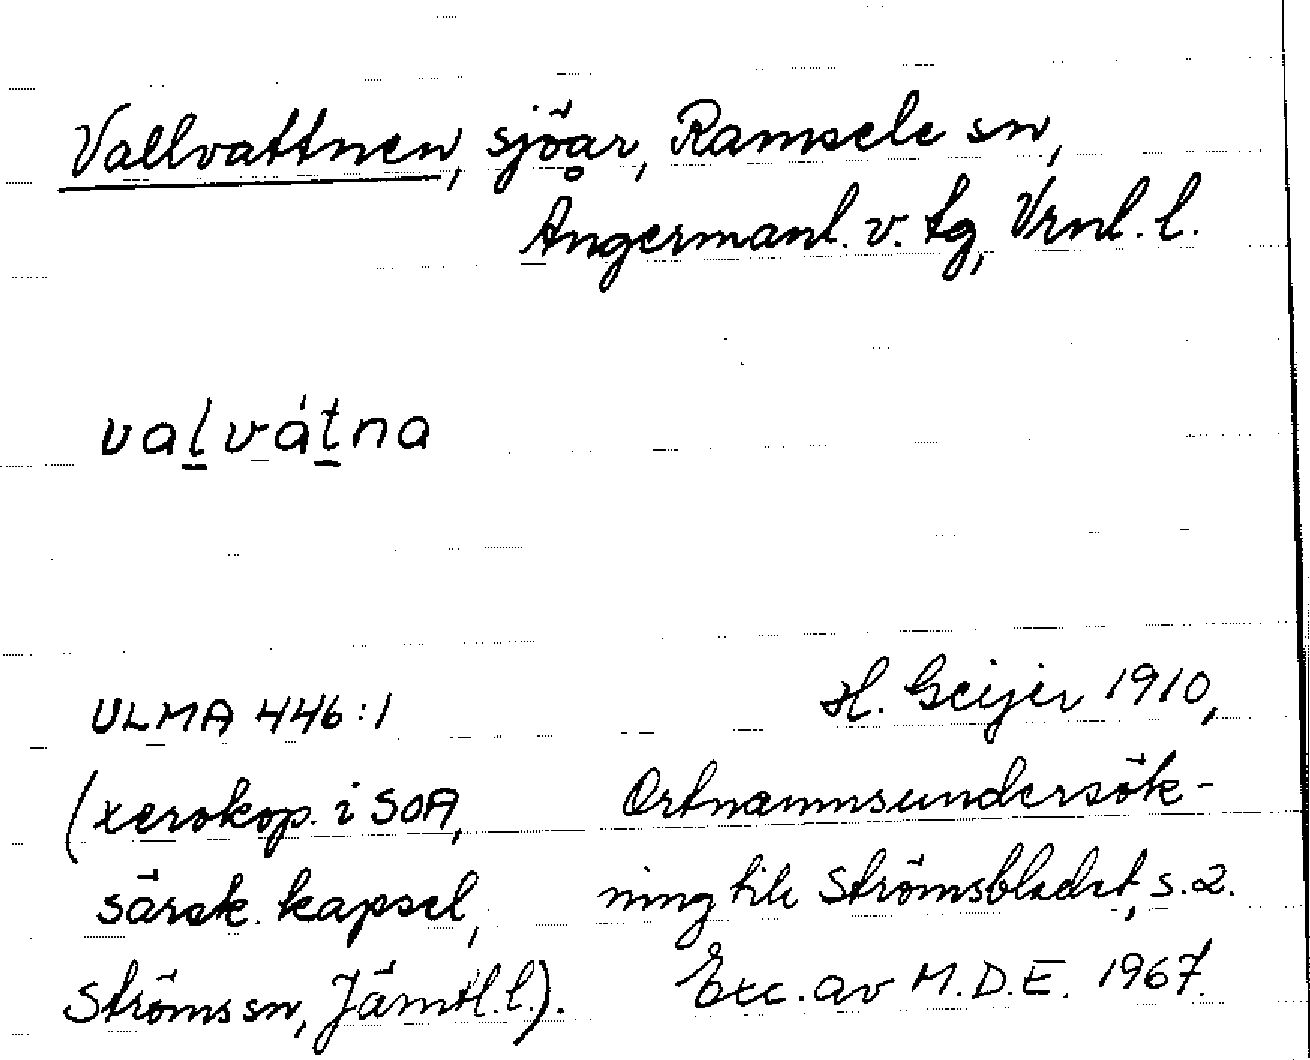 Vallvattnen, sjöar, Ramsele sn,
Ångermanl. v. tg, Vrnl. l.
valvátna
ULMA 446:1
(xerokop. i SOA,
särsk. kapsel,
Ströms sn, Jämtl. l.).
H. Geijer 1910,
Ortnamnsundersök-
ning till Strömsbladet, s. 2.
Exc. av M.D.E. 1967.